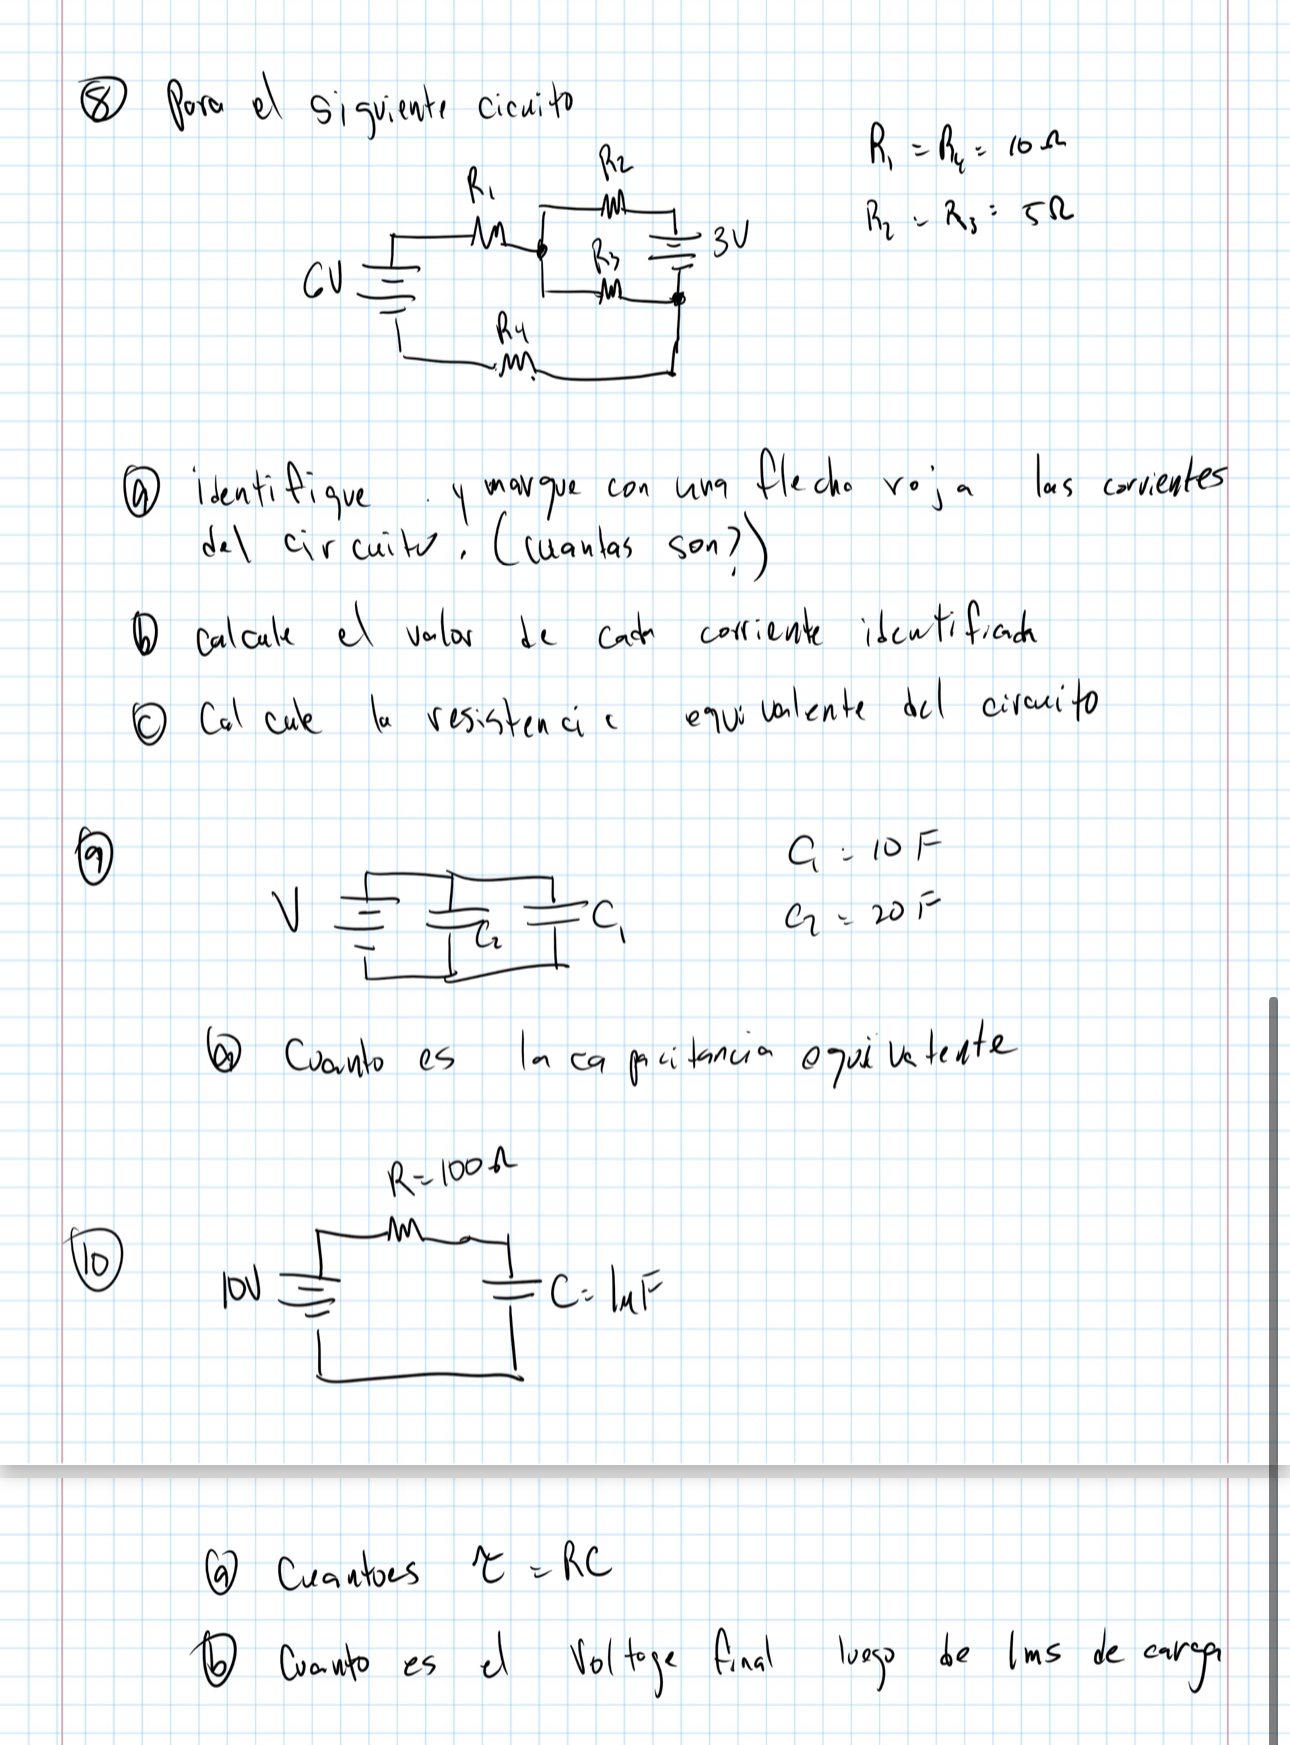 ⑧ Para el siguiente cicuito
R₁ = R₄ = 10 Ω
R₂ = R₃ = 5Ω
R₁
R₂
6V
R₃
3V
R₄
ⓐ identifique y marque con una flecha roja las corrientes
del circuito. (cuantas son?)
ⓑ calcule el valor de cada corriente identificada
ⓒ Calcule la resistencia equivalente del circuito
⑨
C₁ = 10 F
C₂ = 20 F
V
C₂
C₁
ⓐ Cuanto es la capacitancia equivalente
R=100Ω
⑩
10V
C=1μF
ⓐ Cuantoes τ = RC
ⓑ Cuanto es el Voltage final luego de 1ms de carga